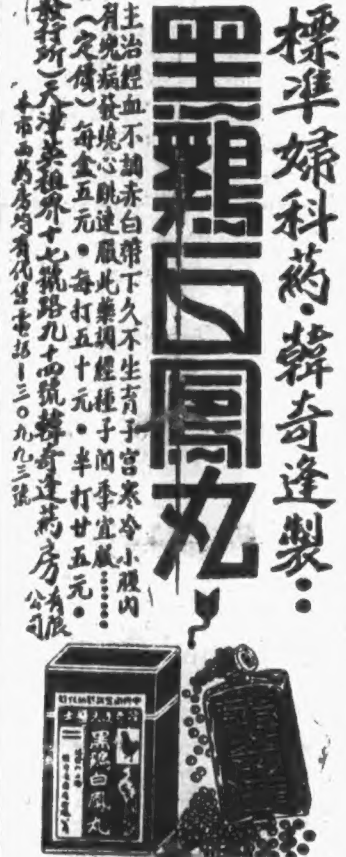 標準婦科葯·韓奇逢製··
黑鷄白鳳丸
主治經血不調赤白帶下久不生育子宮寒冷小腹內
有塊病發燒心跳速服此藥調經種子四季宜服······
(定價)每盒五元·每打五十元·半打廿五元·
發行所)天津英租界十七號路九十四號韓奇逢葯房有限公司
本市西葯房均有代售電話—三〇九九三號
黑鷄白鳳丸